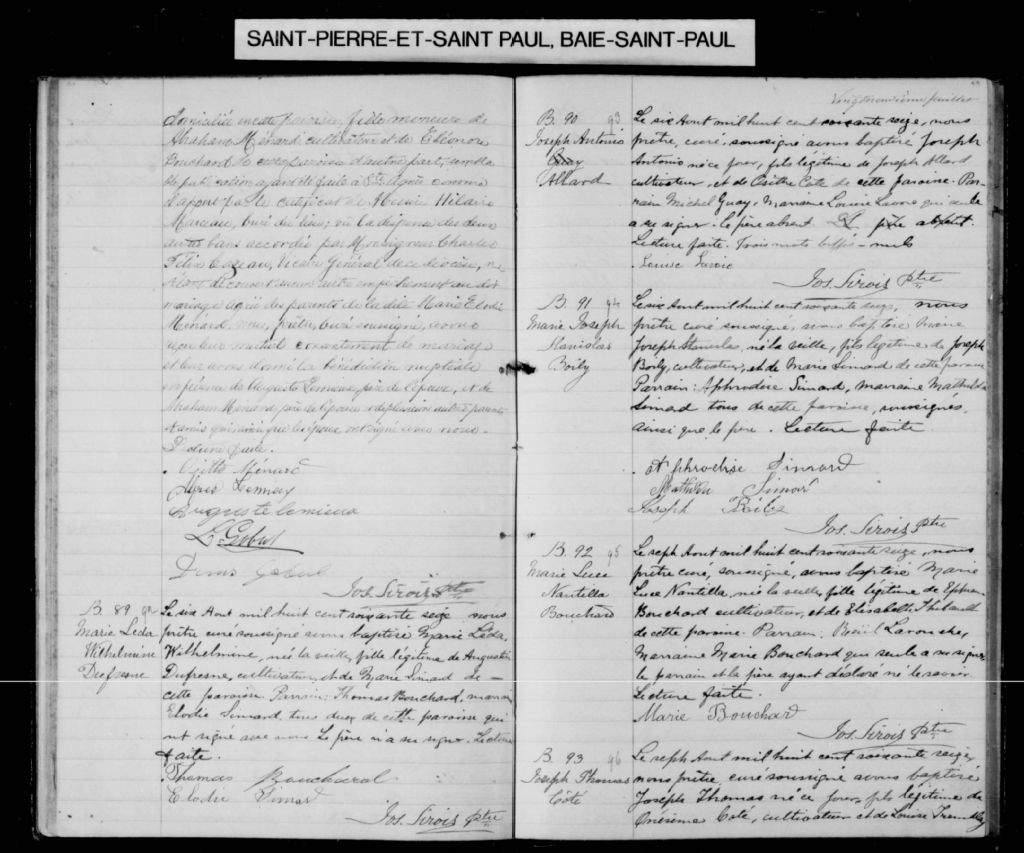 SAINT-PIERRE-ET-SAINT PAUL, BAIE-SAINT-PAUL
domiciliée en cette paroisse, fille mineure de
Abraham Ménard cultivateur et de Eléonore
Bouchard de cette paroisse d'autre part,
publication ayant été faite à Ste Agnès comme
il appert par le certificat de Messire Hilaire
Marceau, curé du lieu; vu la dispense des deux
autres bans accordée par Monseigneur Charles
Félix Cazeau, Vicaire Général de ce diocèse, ne
s'étant découvert aucun autre empêchement au dit
mariage des parents de la dite Marie Elodie
Ménard, nous, prêtre, curé soussigné, avons
reçu leur mutuel consentement de mariage
et leur avons donné la bénédiction nuptiale
en présence de Auguste Lemieux, père de l'époux, et de
Abraham Ménard, père de l'épouse et de plusieurs autres parents
et amis qui ainsi que les époux ont signé avec nous.
Lecture faite.
Ménard
Auguste Lemieux
Denis
Jos. Sirois Ptre
B. 89
Marie Léda
Wilhelmine
Dufresne
Le six Aout mil huit cent soixante seize nous
prêtre curé soussigné avons baptisé Marie Léda,
Wilhelmine, née la veille, fille légitime de Augustin
Dufresne, cultivateur, et de Marie Simard de
cette paroisse. Parrain: Thomas Bouchard, marraine
Elodie Simard tous deux de cette paroisse qui
ont signé avec nous Le père n'a su signer. Lecture
faite.
Thomas Bouchard
Elodie Simard
Jos. Sirois ptre
Vingt neuvième feuillet
B. 90 93
Joseph Antonio
Guay
Allard
Le six Aout mil huit cent soixante seize, nous
prêtre, curé, soussigné avons baptisé Joseph
Antonio né ce jour, fils légitime de Joseph Allard
cultivateur, et de Osithe Coté de cette paroisse. Par-
rain Michel Guay, Marraine Louise Lavoie qui seule
a su signer. le père absent. père absent.
Lecture faite. Trois mots biffés nuls
Louise Lavoie
Jos. Sirois Ptre
B. 91 94
Marie Joseph
Stanislas
Boily
Le six Aout mil huit cent soixante seize, nous
prêtre curé soussigné, avons baptisé Marie
Joseph Stanislas, né la veille, fils légitime de Joseph
Boily, cultivateur, et de Marie Simard de cette paroisse
Parrain: Aphrodise Simard, marraine Mathilda
Simard tous de cette paroisse, soussignés,
ainsi que le père. Lecture faite.
Aphrodise Simard
Mathilda Simard
Joseph Boily
Jos. Sirois Ptre
B. 92 95
Marie Luce
Nantilla
Bouchard
Le sept Aout mil huit cent soixante seize, nous
prêtre curé, soussigné, avons baptisé Marie
Luce Nantilla, née la veille, fille légitime de Ephrem
Bouchard cultivateur, et de Elisabeth Thibeault
de cette paroisse. Parrain: Lavouche,
Marraine Marie Bouchard qui seule a su signer
le parrain et le père ayant déclaré ne le savoir.
Lecture faite.
Marie Bouchard
Jos. Sirois Ptre
B. 93 96
Joseph Thomas
Côté
Le sept Aout mil huit cent soixante seize,
nous prêtre, curé soussigné avons baptisé
Joseph Thomas né ce jour, fils légitime de
Onésime Coté, cultivateur et de Louise Tremblay